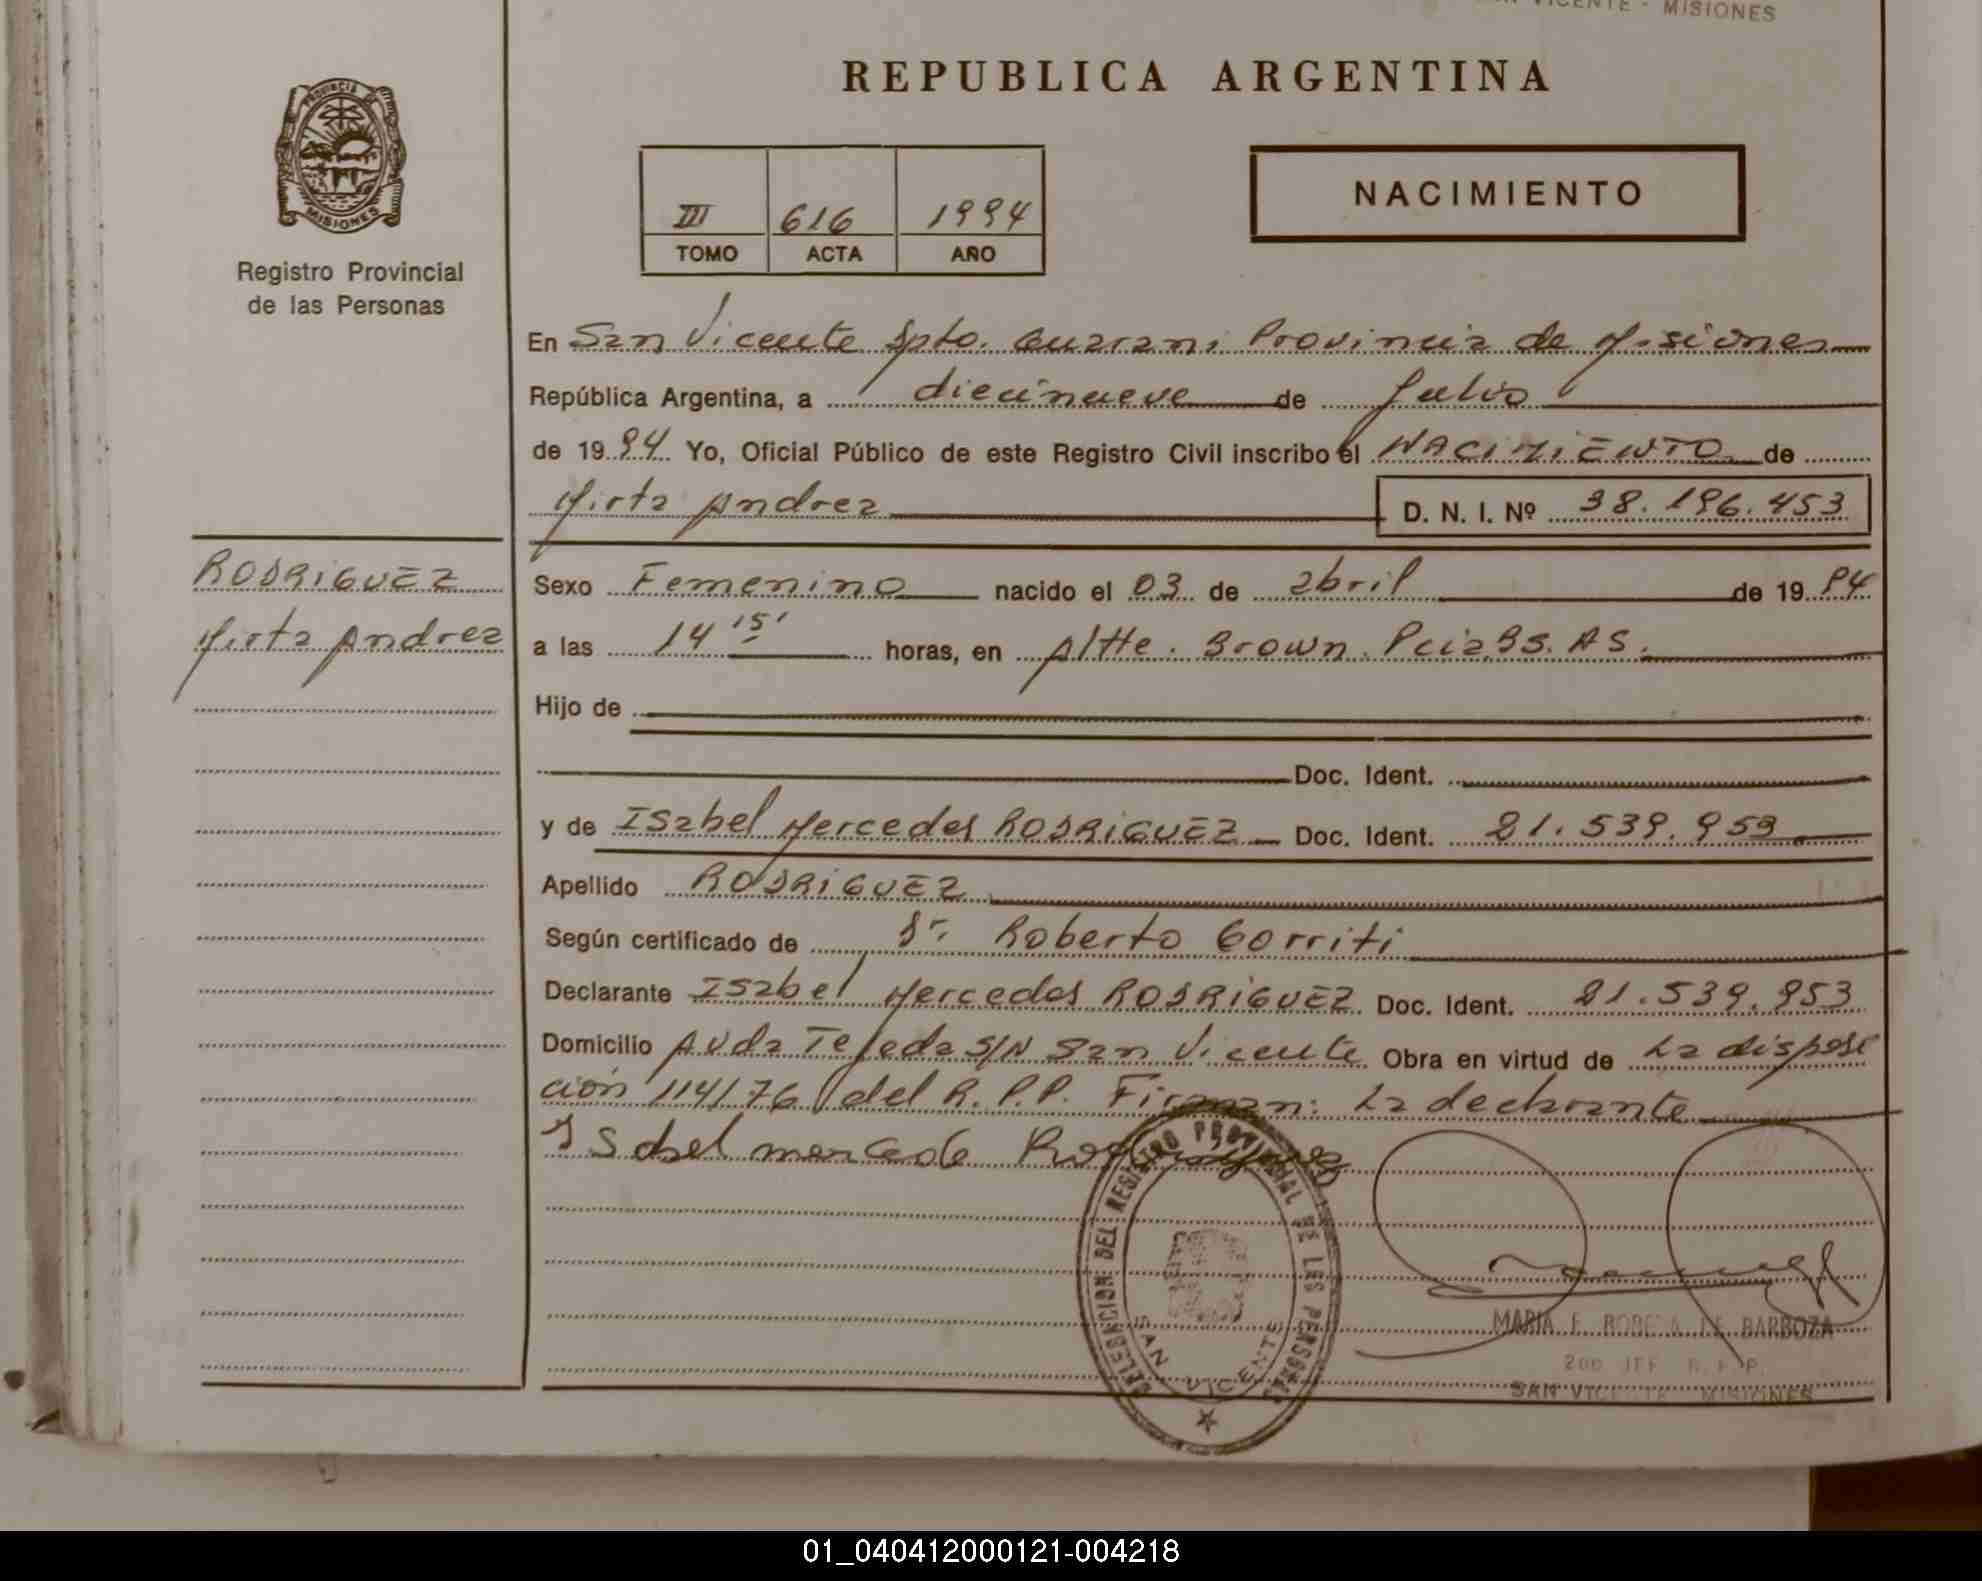 SAN VICENTE - MISIONES
REPUBLICA ARGENTINA
PROVINCIA DE
MISIONES
Registro Provincial
de las Personas
III 616 1994
TOMO ACTA AÑO
NACIMIENTO
En San Vicente Dpto. Guarani Provincia de Misiones
República Argentina, a diecinueve de Julio
de 1994 Yo, Oficial Público de este Registro Civil inscribo el NACIMIENTO de
Mirta Andrea D. N. I. Nº 38.196.453
RODRIGUEZ
Mirta Andrea
Sexo Femenino nacido el 03 de abril de 1994
a las 14 15' horas, en Altte. Brown. Pcia. Bs. AS.
Hijo de
Doc. Ident.
y de ISabel Mercedes RODRIGUEZ Doc. Ident. 21.539.953
Apellido RODRIGUEZ
Según certificado de Dr. Roberto Gorriti
Declarante ISabel Mercedes RODRIGUEZ Doc. Ident. 21.539.953
Domicilio AVda Tejeda S/N San Vicente Obra en virtud de La disposi
ción 114/76 del R.P.P. Firman: La declarante
ISabel mercede Rodriguez
DELEGACION DEL REGISTRO PROVINCIAL DE LES PERSONAS
SAN VICENTE
MARIA E. DE BARBOZA
R. P. P.
SAN VICENTE MISIONES
01_040412000121-004218